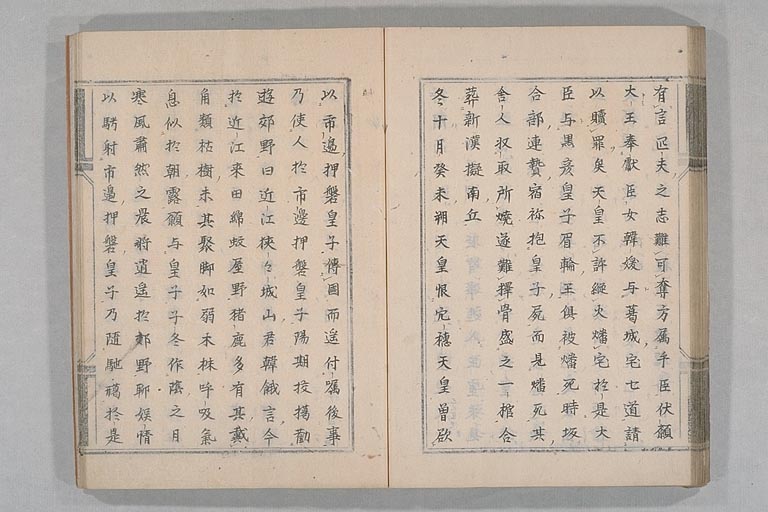 有言匹夫之志難可奪方属乎臣伏願
大王奉獻臣女韓媛与葛城宅七道請
以贖罪矣天皇不許縱火燔宅於是大
臣与黒彦皇子眉輪王俱被燔死時坂
合部連贄宿祢抱皇子屍而見燔死其
舎人収取所燒遂難擇骨盛之一棺合
葬新漢擬南丘
冬十月癸未朔天皇恨宂穂天皇曽欲
以市邊押磐皇子傳國而遥付嘱後事
乃使人於市邊押磐皇子陽期狡獦勸
遊郊野曰近江狹々城山君韓帒言今
於近江來田綿蚊屋野猪鹿多有其戴
角類枯樹末其聚脚如弱木株呼吸氣
息似於朝霧願与皇子孟冬作陰之月
寒風肅然之晨将逍遥於郊野聊娯情
以騁射市邊押磐皇子乃随馳獦於是